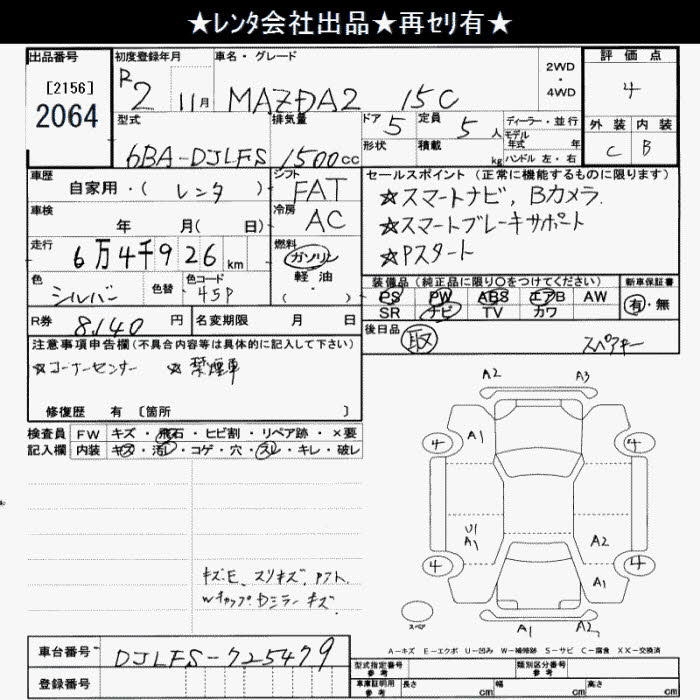 ★レンタ会社出品★再セリ有★
出品番号 初度登録年月 車名・グレード 2WD・4WD 評価点
[2156]
2064 R2 11月 MAZDA2 15C 4
型式 排気量 ドア 定員 ディーラー・並行 外装 内装
6BA-DJLFS 1500cc 5 5人 モデル年式 年 C B
形状 積載 kg ハンドル 左・右
車歴 シフト セールスポイント (正常に機能するものに限ります)
自家用・( レンタ ) FAT ☆スマートナビ, Bカメラ.
車検 冷房 ☆スマートブレーキサポート
年 月( 日) AC ☆Pスタート
走行 燃料
6万4千926km ガソリン
軽・油
( )
色 色替 色コード 装備品 (純正品に限り○をつけてください) 新車保証書
シルバー 45P PS PW ABS エアB AW 有・無
SR ナビ TV カワ
R券 8,140円 名変期限 月 日 後日品 取 スペアキー
注意事項申告欄(不具合内容等は具体的に記入して下さい)
☆コーナーセンサー ☆禁煙車
修復歴 有 [箇所 ]
検査員 FW キズ・飛石・ヒビ割・リペア跡・×要
記入欄 内装 キズ・汚レ・コゲ・穴・スレ・キレ・破レ
A2 A3
A1
4 4
U1
A1 A2
4 4
A1
スペア
A1 A2
キズE、スリキズ、
キズ.
A-キズ E-エクボ U-凹み W-補修跡 S-サビ C-腐食 XX-交換済
車台番号 DJLFS-725479
登録番号
型式指定番号 参考 類別区分番号 参考
車庫証明用 参考 長さ cm 幅 cm 高さ cm